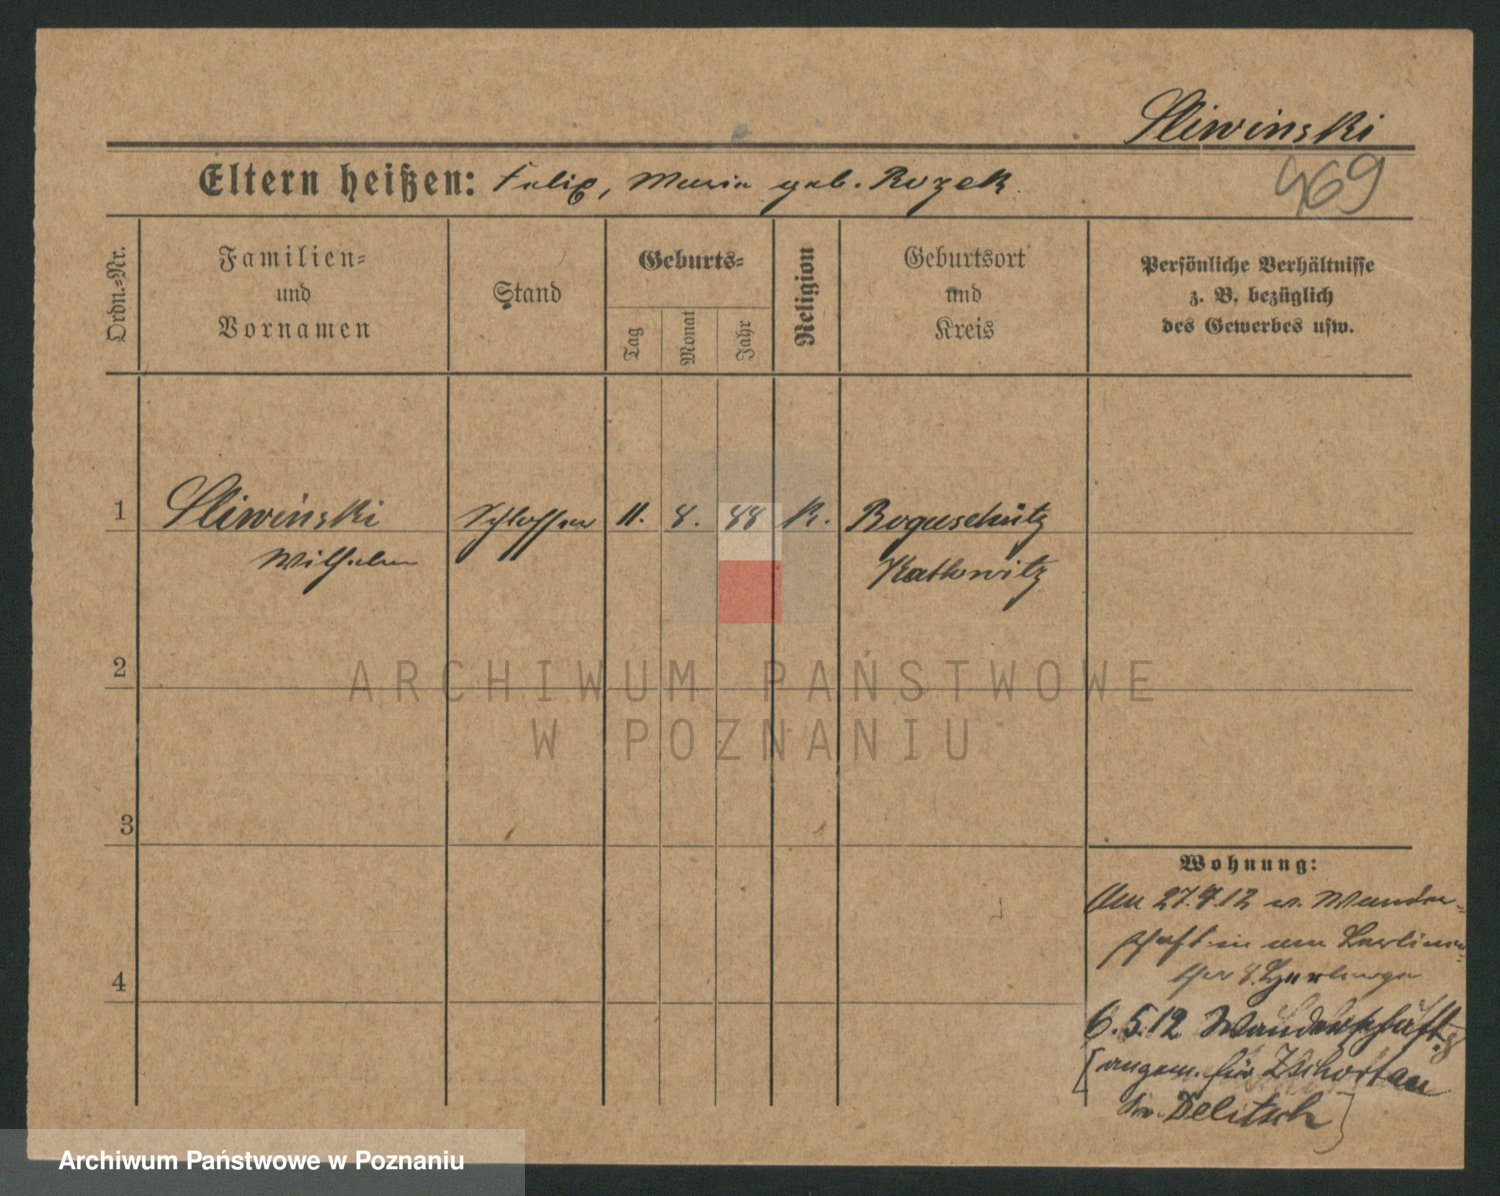 Sliwinski
469
Eltern heißen: Felix, Maria geb. Rozek
Ordn.-Nr.
Familien-
und
Vornamen
Stand
Geburts-
Tag
Monat
Jahr
Religion
Geburtsort
und
Kreis
Persönliche Verhältnisse
z. B. bezüglich
des Gewerbes usw.
1
Sliwinski
Wilhelm
Schlosser
11.
8.
88
K.
Boguschütz
Kattowitz
2
3
4
Wohnung:
27.4.12 Wander-
schaft
6.5.12 Wanderschaft
[angem. für Zschortau
Kr. Delitsch]
ARCHIWUM PAŃSTWOWE
W POZNANIU
Archiwum Państwowe w Poznaniu